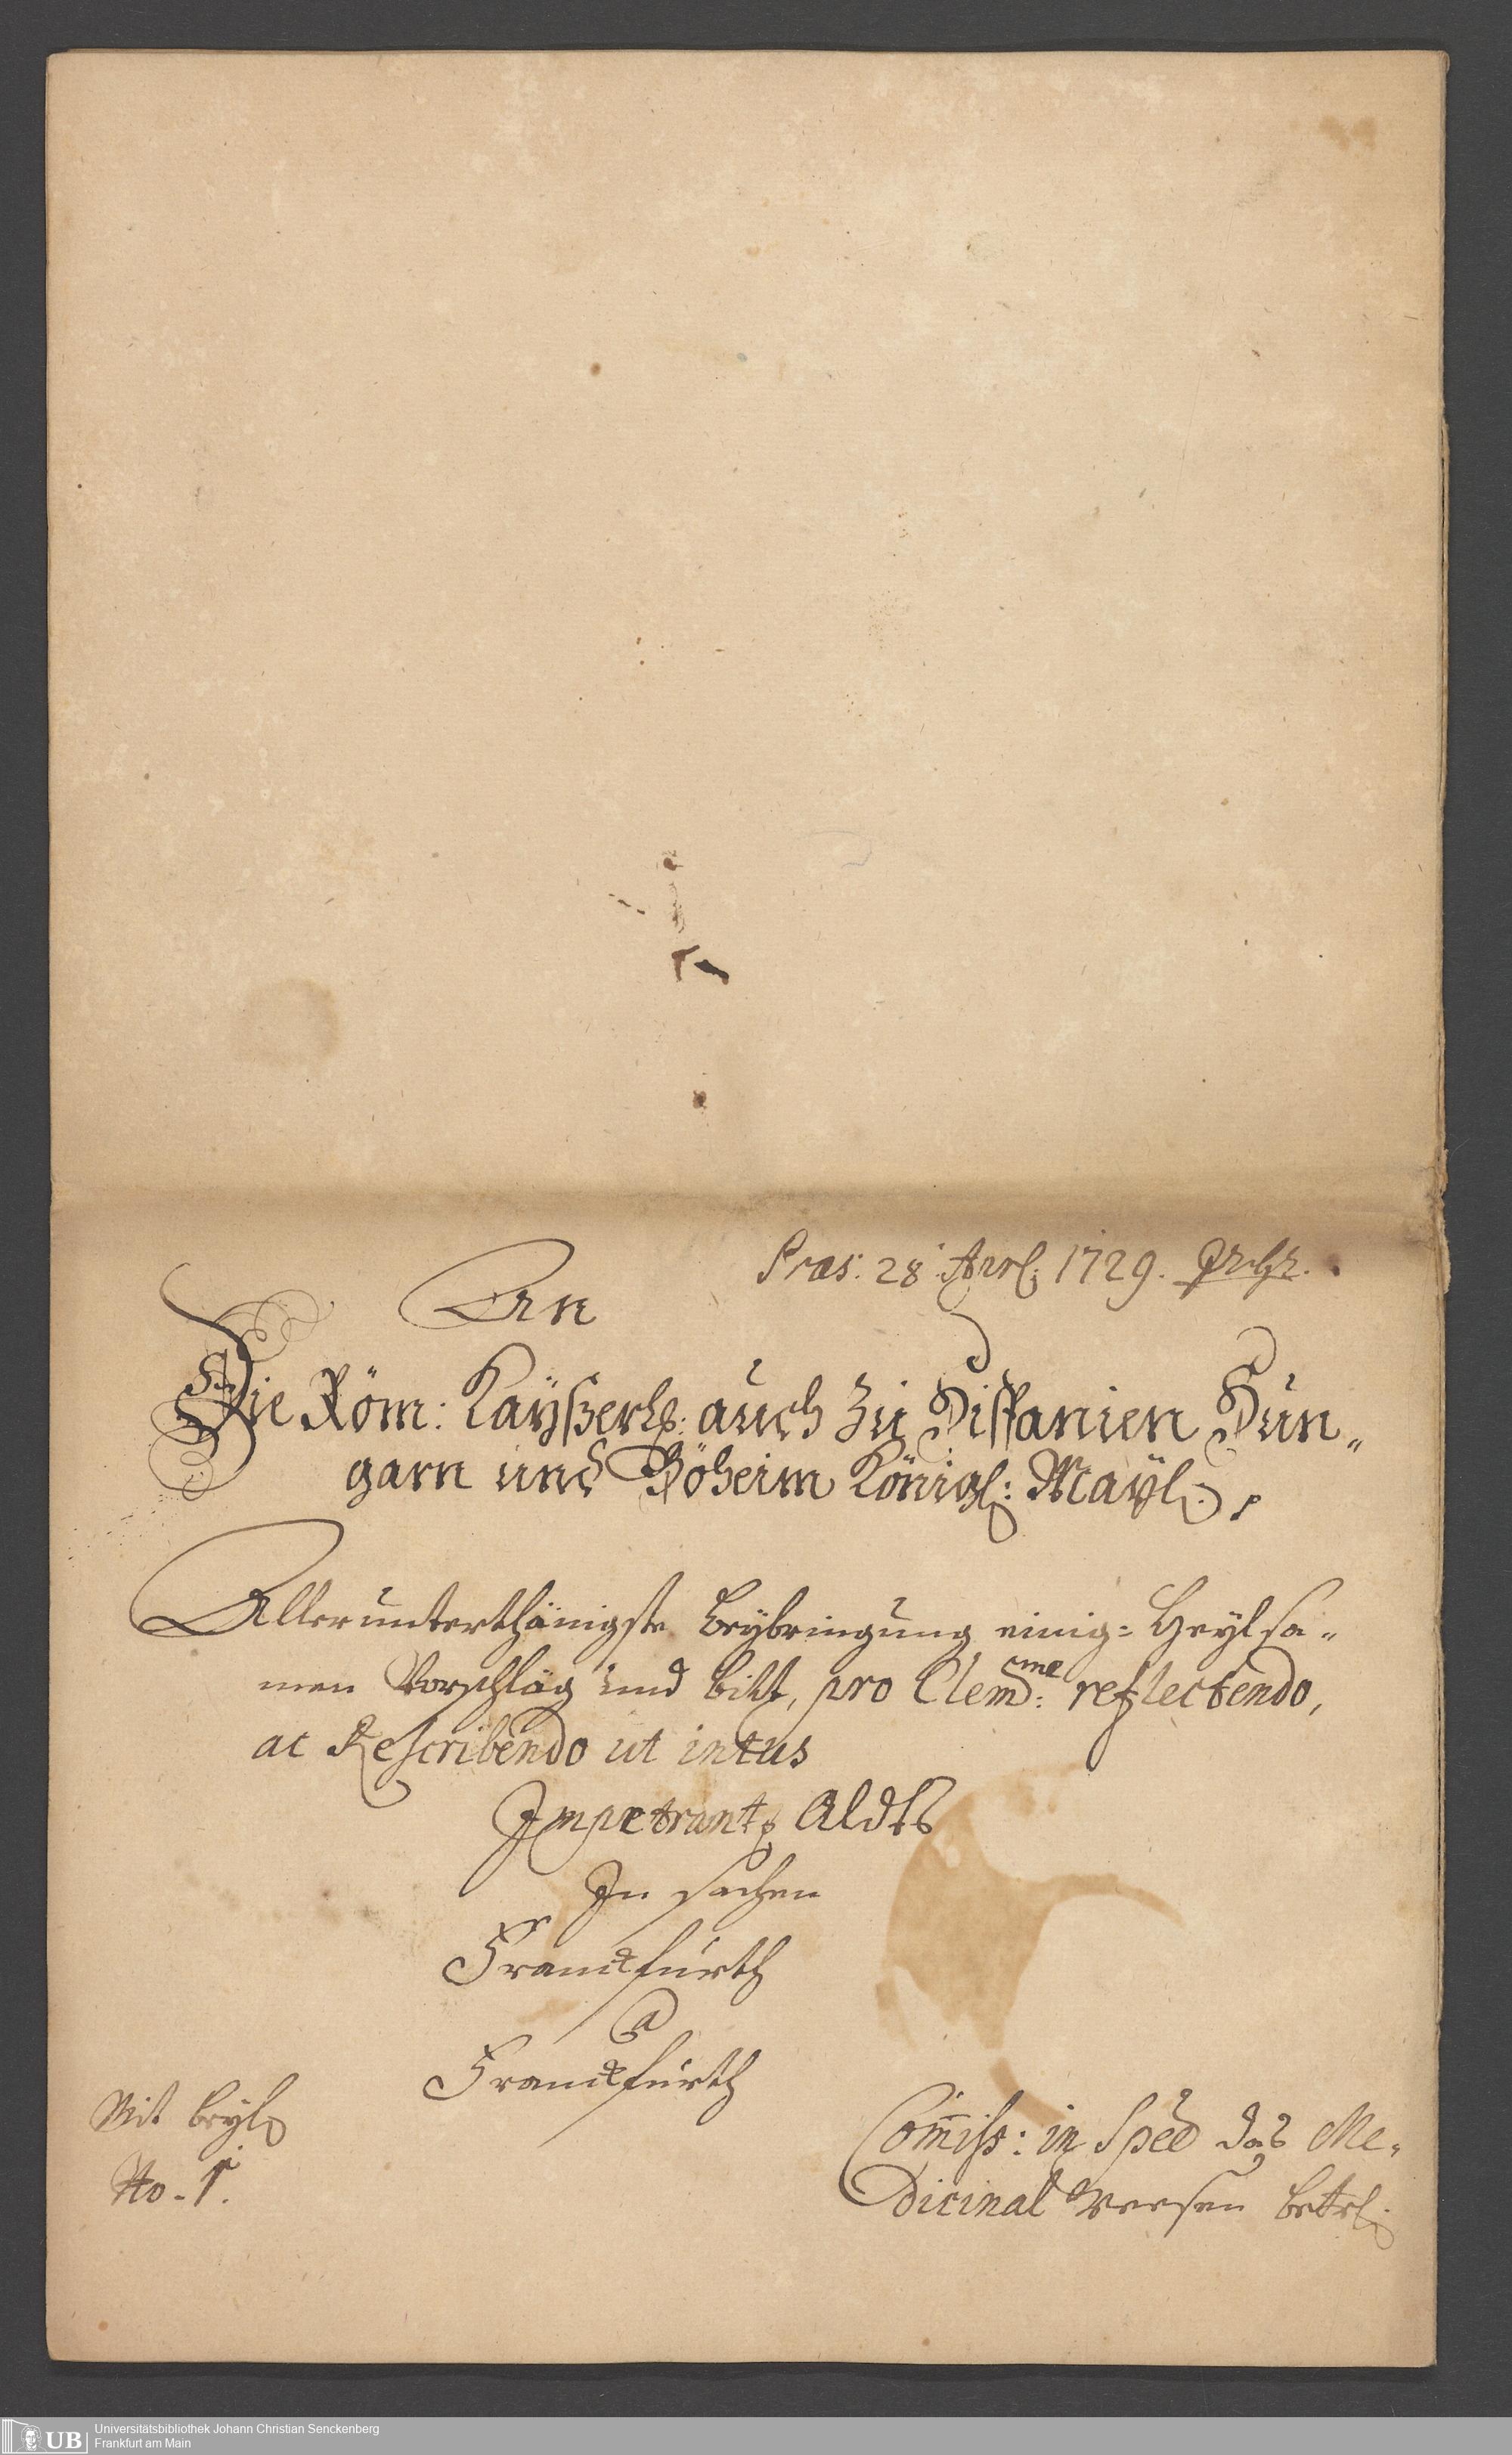 Præs: 28 Aprl: 1729.
An
Die Röm: Kayßerl: auch zu Hispanien Hun„
garn und Böheim Königl: Mayt:
Allerunterthänigste beybringung einig= Heylsa„
men Vorschläg und bitt, pro Clemme: reflectendo,
ac Rescribendo ut intus
Impetrant. Aldts
In sachen
Franckfurth
Franckfurth
Mit beyl
No. 1.
Commiss: in Spee das Me„
dicinal weesen betrl:
UB
Universitätsbibliothek Johann Christian Senckenberg
Frankfurt am Main